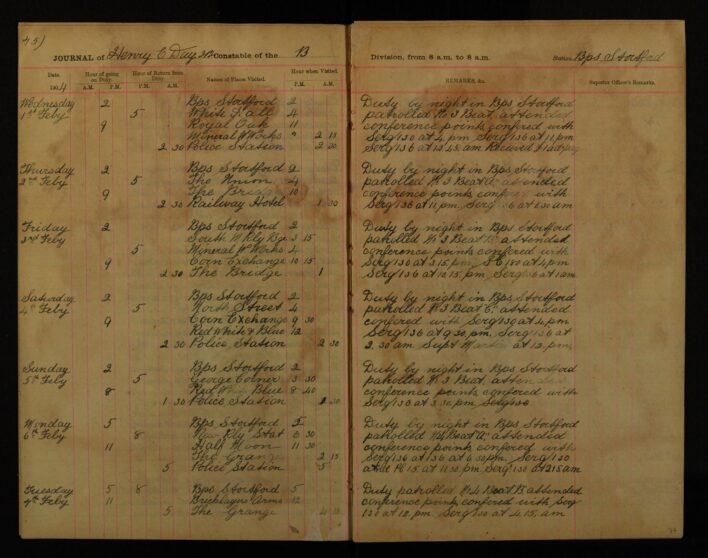 45)
JOURNAL of Henry C Day Constable of the B Division, from 8 a.m. to 8 a.m. Station Bps Stortford
Date. Hour of going on Duty. Hour of Return from Duty. Names of Places Visited. Hour when Visited. REMARKS, &c. Superior Officer's Remarks.
1904 A.M. P.M. A.M. P.M. P.M. A.M.
Wednesday 2 Bps Stortford 2 Duty by night in Bps Stortford
1st Feby 5 White Hall 4 patrolled No 3 Beat. attended
9 Royal Oak 11 conference points confered with
Mineral W Works " 2 15 Serg 130 at 4 pm Serg 136 at 11 pm
2 30 Police Station 2 30 Serg 136 at 12.45 am
Thursday 2 Bps Stortford 2 Duty by night in Bps Stortford
2nd Feby 5 The Union 4 patrolled No 3 Beat attended
9 The Bridge 10 conference points confered with
2 30 Railway Hotel 1 30 Serg 136 at 11 pm. Serg 136 at 1.30 am
Friday 2 Bps Stortford 2 Duty by night in Bps Stortford
3rd Feby South W Rly Bge 3 15 patrolled No 3 Beat attended
5 Mineral W Works 4 conference points confered with
9 Corn Exchange 10 15 Serg 130 at 3.15 pm. at 4 pm
2 30 The Bridge 1 Serg 136 at 10.15 pm. Serg 136 at 1 am
Saturday 2 Bps Stortford 2 Duty by night in Bps Stortford
4th Feby 5 North Street 4 patrolled No 3 Beat C. attended
9 Corn Exchange 9 30 confered with Serg 130 at 4 pm
Red White & Blue 12 Serg 136 at 9.30 pm. Serg 136 at
2 30 Police Station 2 30 2.30 am Supt at 12 pm
Sunday 2 Bps Stortford 2 Duty by night in Bps Stortford
5th Feby 5 George Corner 3 30 patrolled No 3 Beat, attended
8 Red White Blue 8 40 conference points confered with
1 30 Police Station 1 30 Serg 130 at 3.30 pm. Serg 136
Monday 5 Bps Stortford 5 Duty by night in Bps Stortford
6th Feby 8 New Rly Stat 6 30 patrolled No Beat attended
11 Half Moon 11 30 conference points confered with
The Grange 2 15 Serg 136 at 6.30 pm. Serg 130
5 Police Station 5 at 11.30 pm Serg 130 at 2.15 am
Tuesday 5 8 Bps Stortford 5 Duty patrolled No 4 Beat B attended
7th Feby 11 Bricklayers Arms 12 conference points confered with Serg
5 The Grange 4 15 130 at 12 pm Serg 130 at 4.15 am